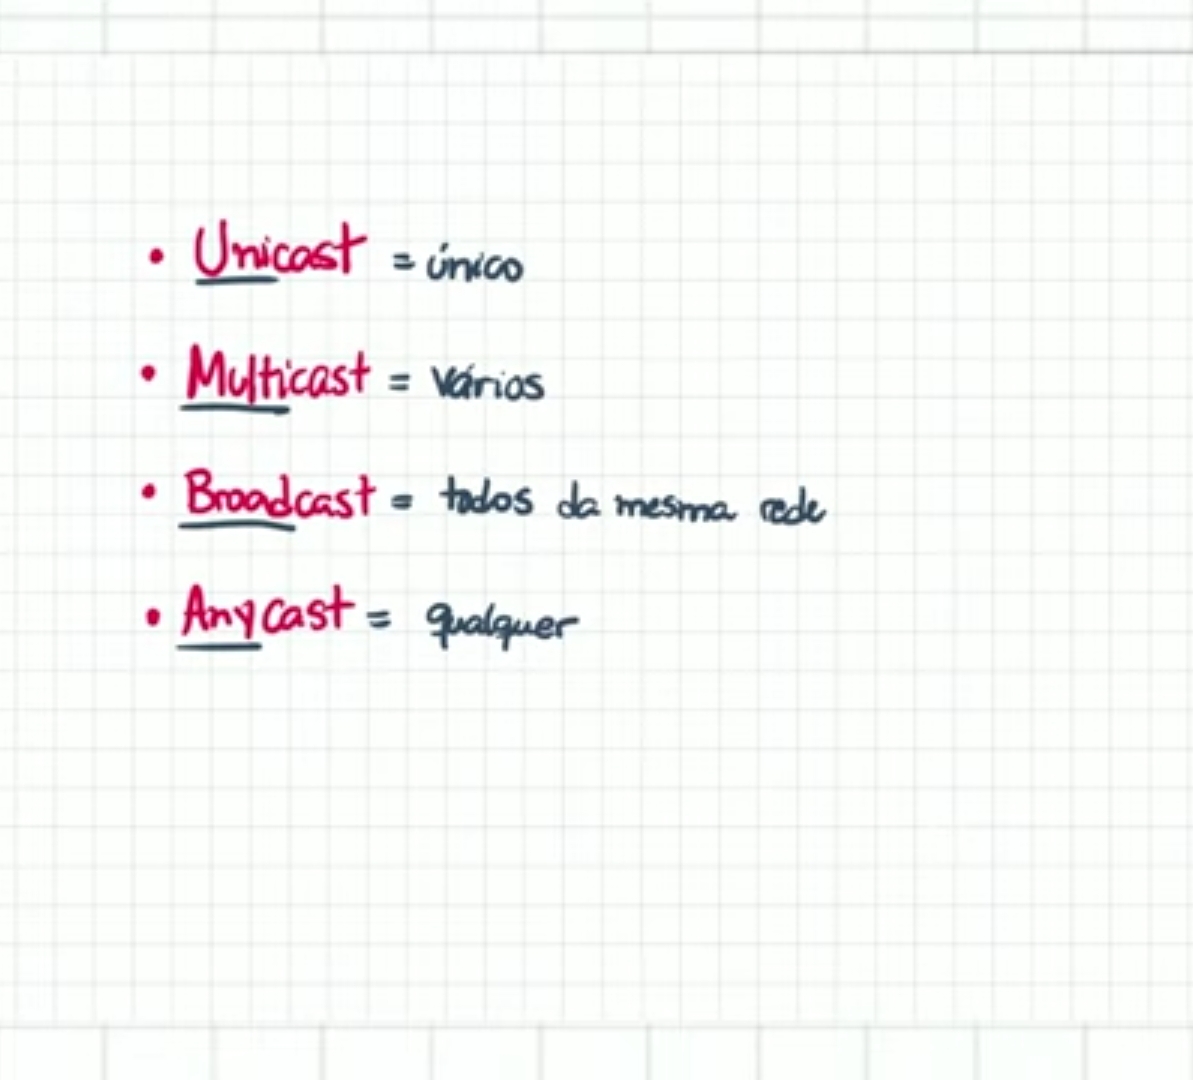 • Unicast = único
• Multicast = vários
• Broadcast = todos da mesma rede
• Anycast = qualquer